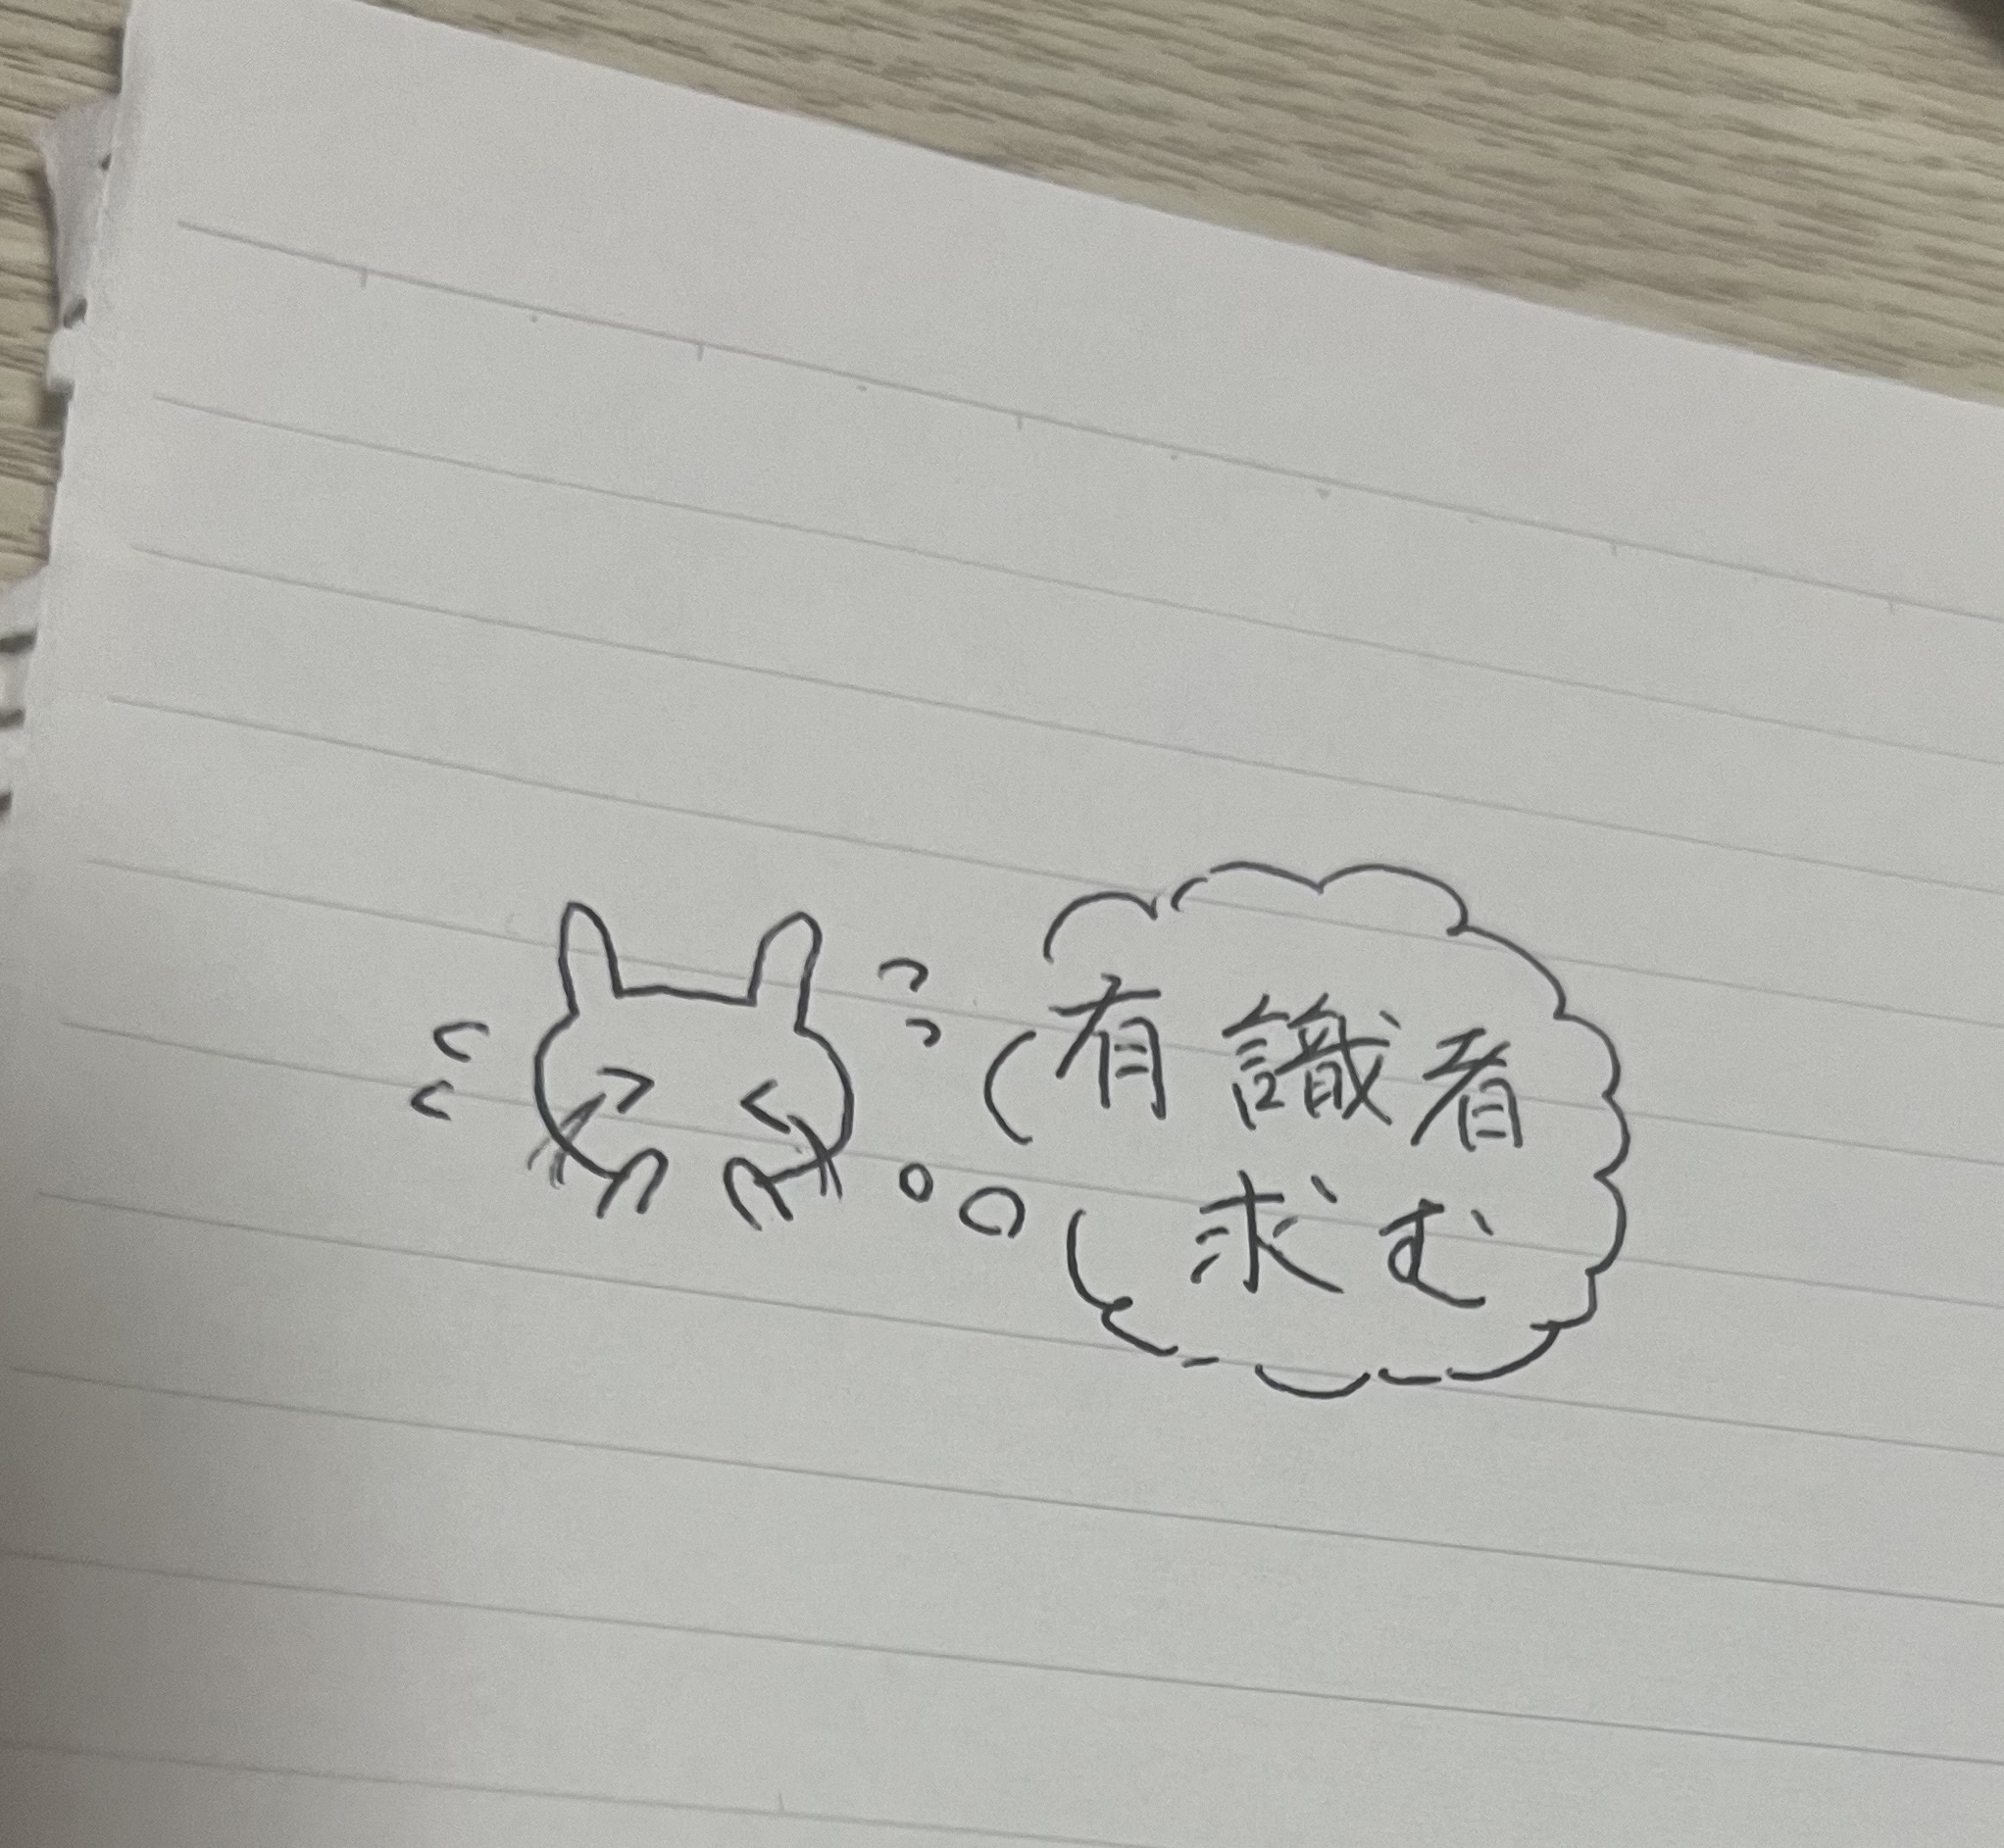 有識者
求む